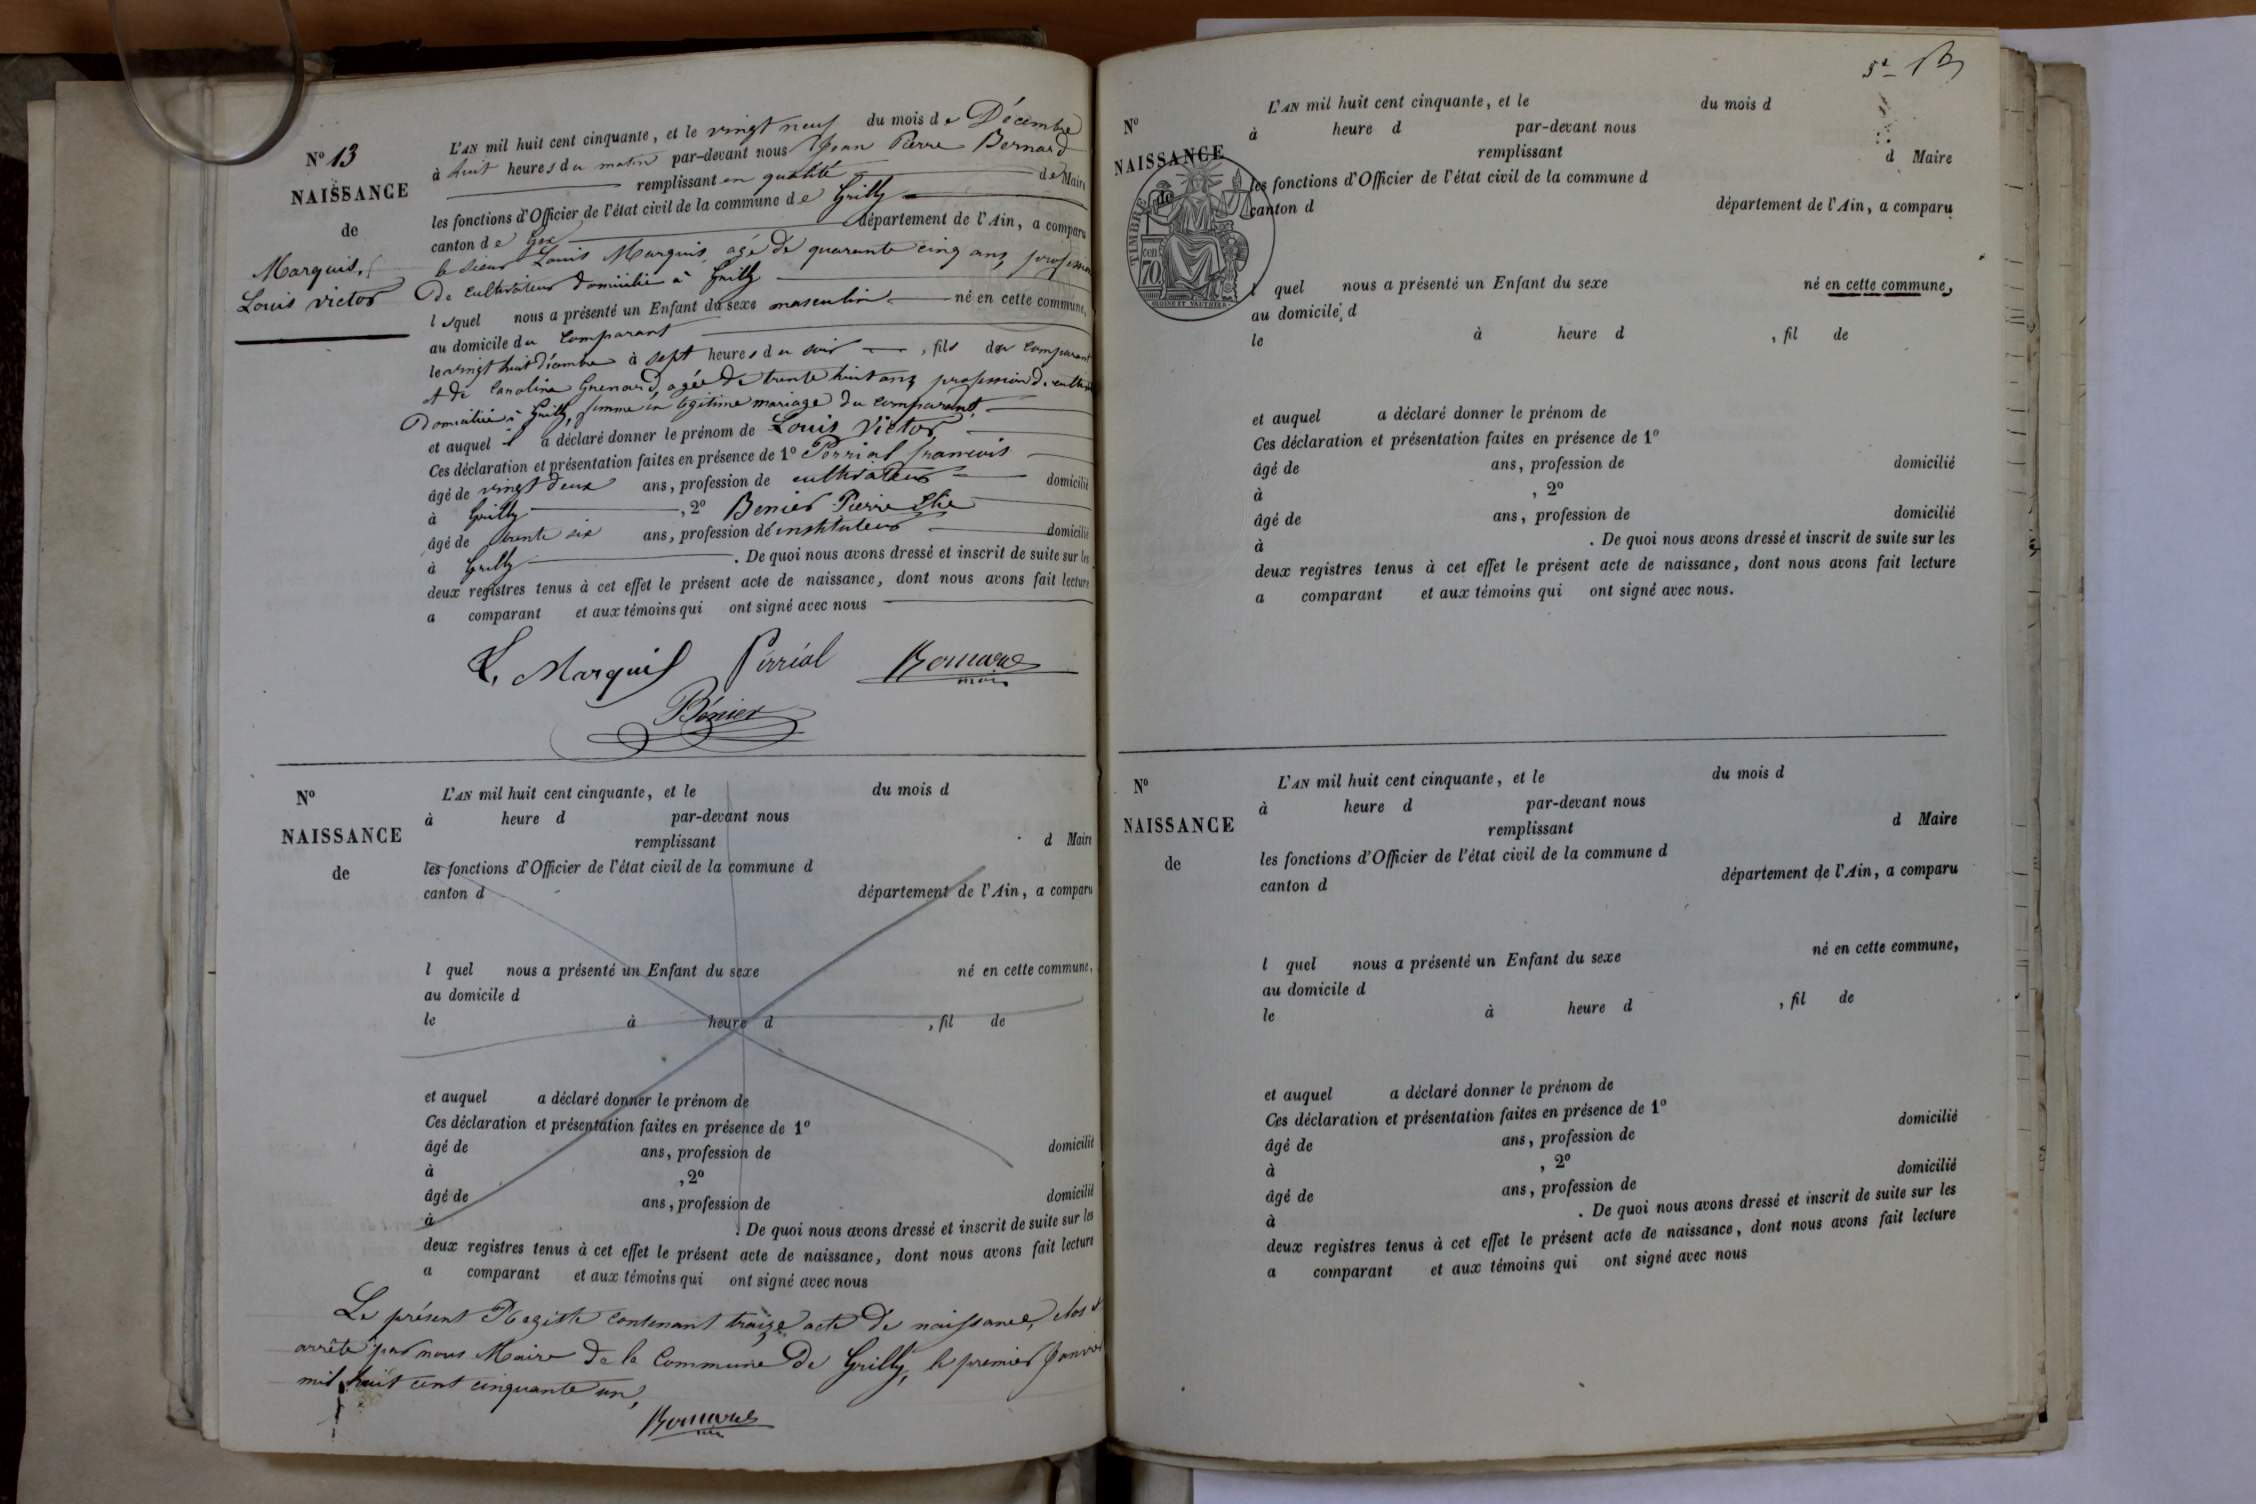 N° 13
NAISSANCE
de
Marquis,
Louis Victor
L'AN mil huit cent cinquante, et le vingt neuf du mois de Décembre
à huit heures du matin par-devant nous Jean Pierre Bernard
remplissant en qualité de Maire
les fonctions d'Officier de l'état civil de la commune de Grilly
canton de Gex département de l'Ain, a comparu
le sieur Louis Marquis, agé de quarante cinq ans, profession
de cultivateur domicilié à Grilly
lequel nous a présenté un Enfant du sexe masculin né en cette commune,
au domicile du comparant
le vingt huit décembre à sept heures du soir, fils du comparant
et de Caroline Grenard, agée de trente huit ans, profession de
domiciliée à Grilly, femme en légitime mariage du comparant,
et auquel il a déclaré donner le prénom de Louis Victor
Ces déclaration et présentation faites en présence de 1° Perrial françois
âgé de vingt deux ans, profession de cultivateur domicilié
à Grilly, 2° Benier Pierre Elie
âgé de trente six ans, profession de instituteur domicilié
à Grilly. De quoi nous avons dressé et inscrit de suite sur les
deux registres tenus à cet effet le présent acte de naissance, dont nous avons fait lecture
a comparant et aux témoins qui ont signé avec nous
L. Marquis Pérrial Bernard
maire
Bénier
N°
NAISSANCE
de
L'AN mil huit cent cinquante, et le du mois d
à heure d par-devant nous
remplissant d Maire
les fonctions d'Officier de l'état civil de la commune d
canton d département de l'Ain, a comparu
l quel nous a présenté un Enfant du sexe né en cette commune,
au domicile d
le à heure d , fil de
et auquel a déclaré donner le prénom de
Ces déclaration et présentation faites en présence de 1°
âgé de ans, profession de domicilié
à , 2°
âgé de ans, profession de domicilié
à . De quoi nous avons dressé et inscrit de suite sur les
deux registres tenus à cet effet le présent acte de naissance, dont nous avons fait lecture
a comparant et aux témoins qui ont signé avec nous
Le présent Registre contenant treize acte de naissance, clos et
arrêté par nous Maire de la Commune de Grilly, le premier Janvier
mil huit cent cinquante un,
Bernard
5e
N°
NAISSANCE
de
TIMBRE
cen
70
L'AN mil huit cent cinquante, et le du mois d
à heure d par-devant nous
remplissant d Maire
les fonctions d'Officier de l'état civil de la commune d
canton d département de l'Ain, a comparu
l quel nous a présenté un Enfant du sexe né en cette commune,
au domicile d
le à heure d , fil de
et auquel a déclaré donner le prénom de
Ces déclaration et présentation faites en présence de 1°
âgé de ans, profession de domicilié
à , 2°
âgé de ans, profession de domicilié
à . De quoi nous avons dressé et inscrit de suite sur les
deux registres tenus à cet effet le présent acte de naissance, dont nous avons fait lecture
a comparant et aux témoins qui ont signé avec nous.
N°
NAISSANCE
de
L'AN mil huit cent cinquante, et le du mois d
à heure d par-devant nous
remplissant d Maire
les fonctions d'Officier de l'état civil de la commune d
canton d département de l'Ain, a comparu
l quel nous a présenté un Enfant du sexe né en cette commune,
au domicile d
le à heure d , fil de
et auquel a déclaré donner le prénom de
Ces déclaration et présentation faites en présence de 1°
âgé de ans, profession de domicilié
à , 2°
âgé de ans, profession de domicilié
à . De quoi nous avons dressé et inscrit de suite sur les
deux registres tenus à cet effet le présent acte de naissance, dont nous avons fait lecture
a comparant et aux témoins qui ont signé avec nous